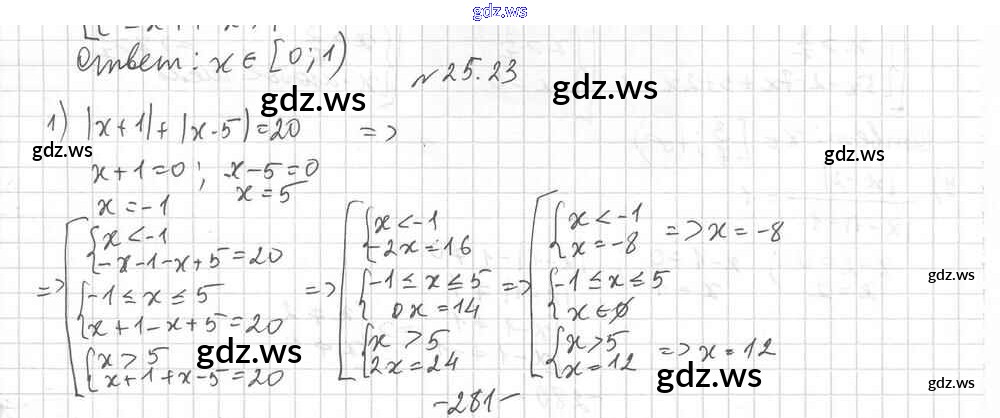 gdz.ws
Ответ: x ∈ [0; 1)
№ 25.23
gdz.ws gdz.ws
1) |x+1| + |x-5| = 20 =>
gdz.ws gdz.ws
x+1=0; x-5=0
x=-1 x=5
=> [ { x<-1
-x-1-x+5=20
{ -1≤x≤5
x+1-x+5=20
{ x>5
x+1+x-5=20
=> [ { x<-1
-2x=16
{ -1≤x≤5
0x=14
{ x>5
2x=24
=> [ { x<-1
x=-8 => x=-8
{ -1≤x≤5
x∈∅
{ x>5
x=12 => x=12
gdz.ws
gdz.ws gdz.ws
gdz.ws
-281-